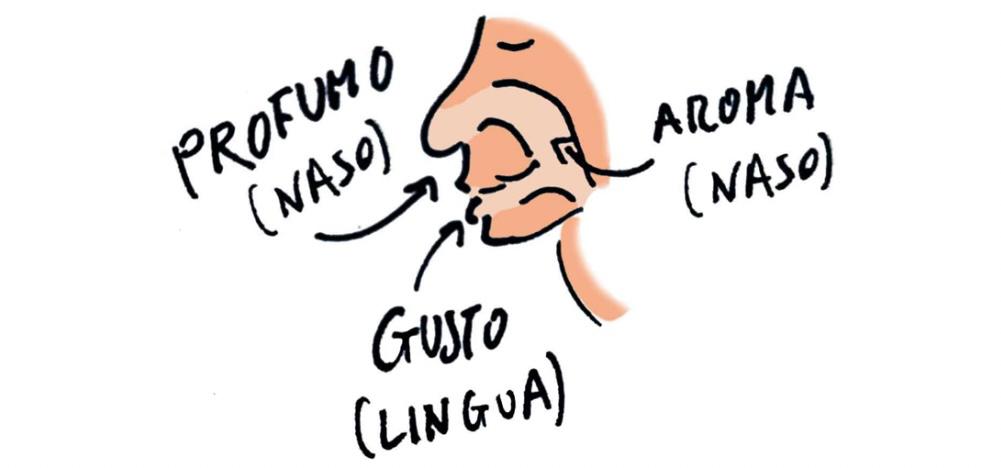 PROFUMO
(NASO)
AROMA
(NASO)
GUSTO
(LINGUA)